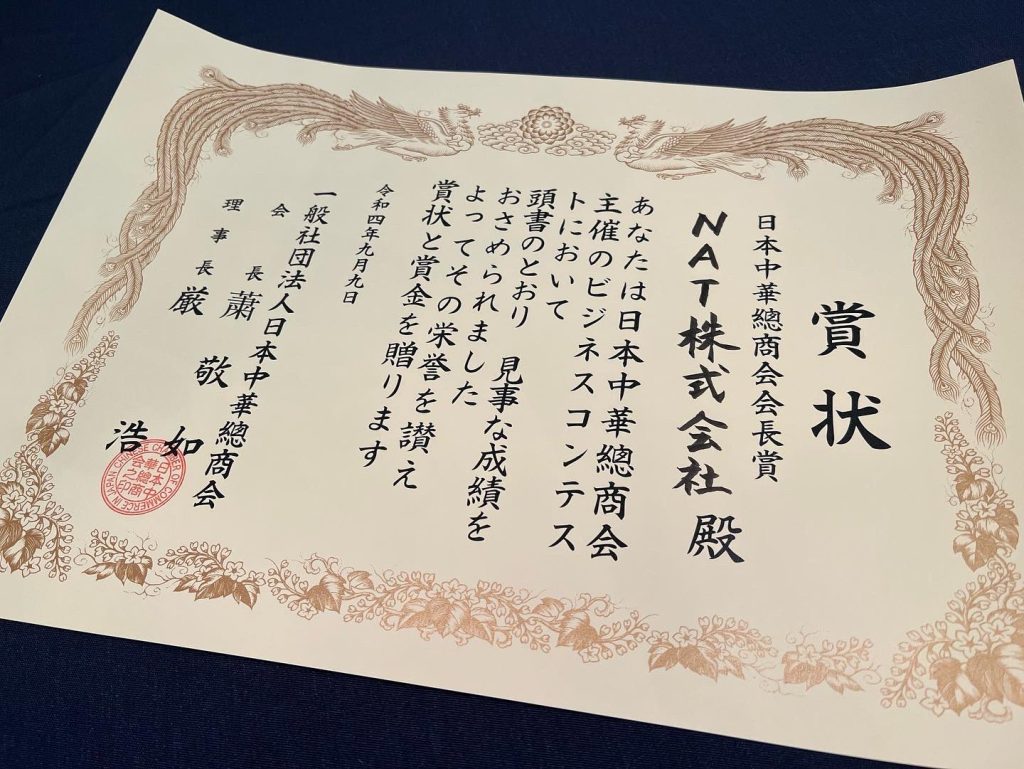 賞状
日本中華總商会会長賞
NAT株式会社 殿
あなたは日本中華總商会
主催のビジネスコンテス
トにおいて
頭書のとおり 見事な成績を
おさめられました
よってその栄誉を讃え
賞状と賞金を贈ります
令和四年九月九日
一般社団法人日本中華總商会
会長 蕭 敬如
理事長 厳 浩
日本中
華總商
会之印
CHAMBER OF COMMERCE IN JAPAN